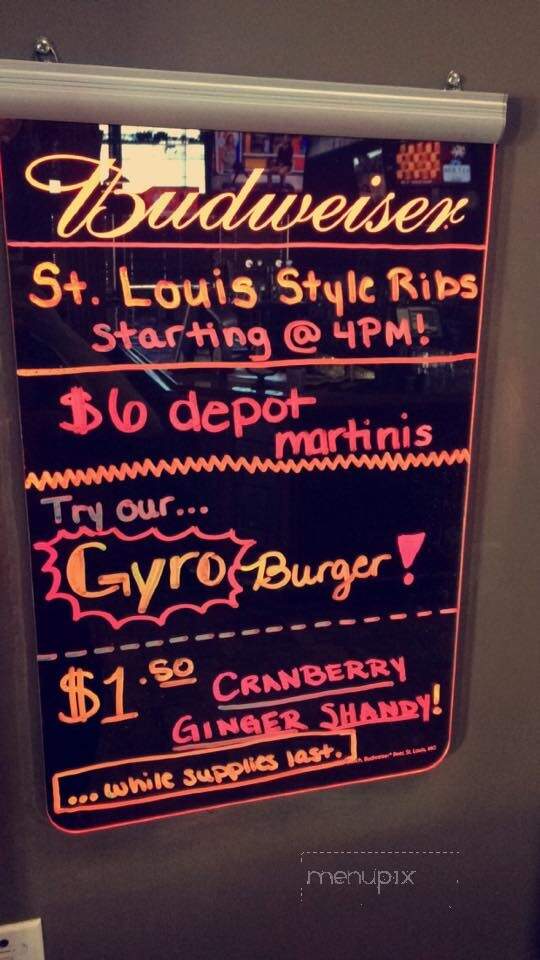 Budweiser
St. Louis Style Ribs
Starting @ 4PM!
$6 depot
martinis
Try our...
Gyro Burger!
$1.50 CRANBERRY
GINGER SHANDY!
...while supplies last.
Budweiser® Beer, St. Louis, MO
menupix